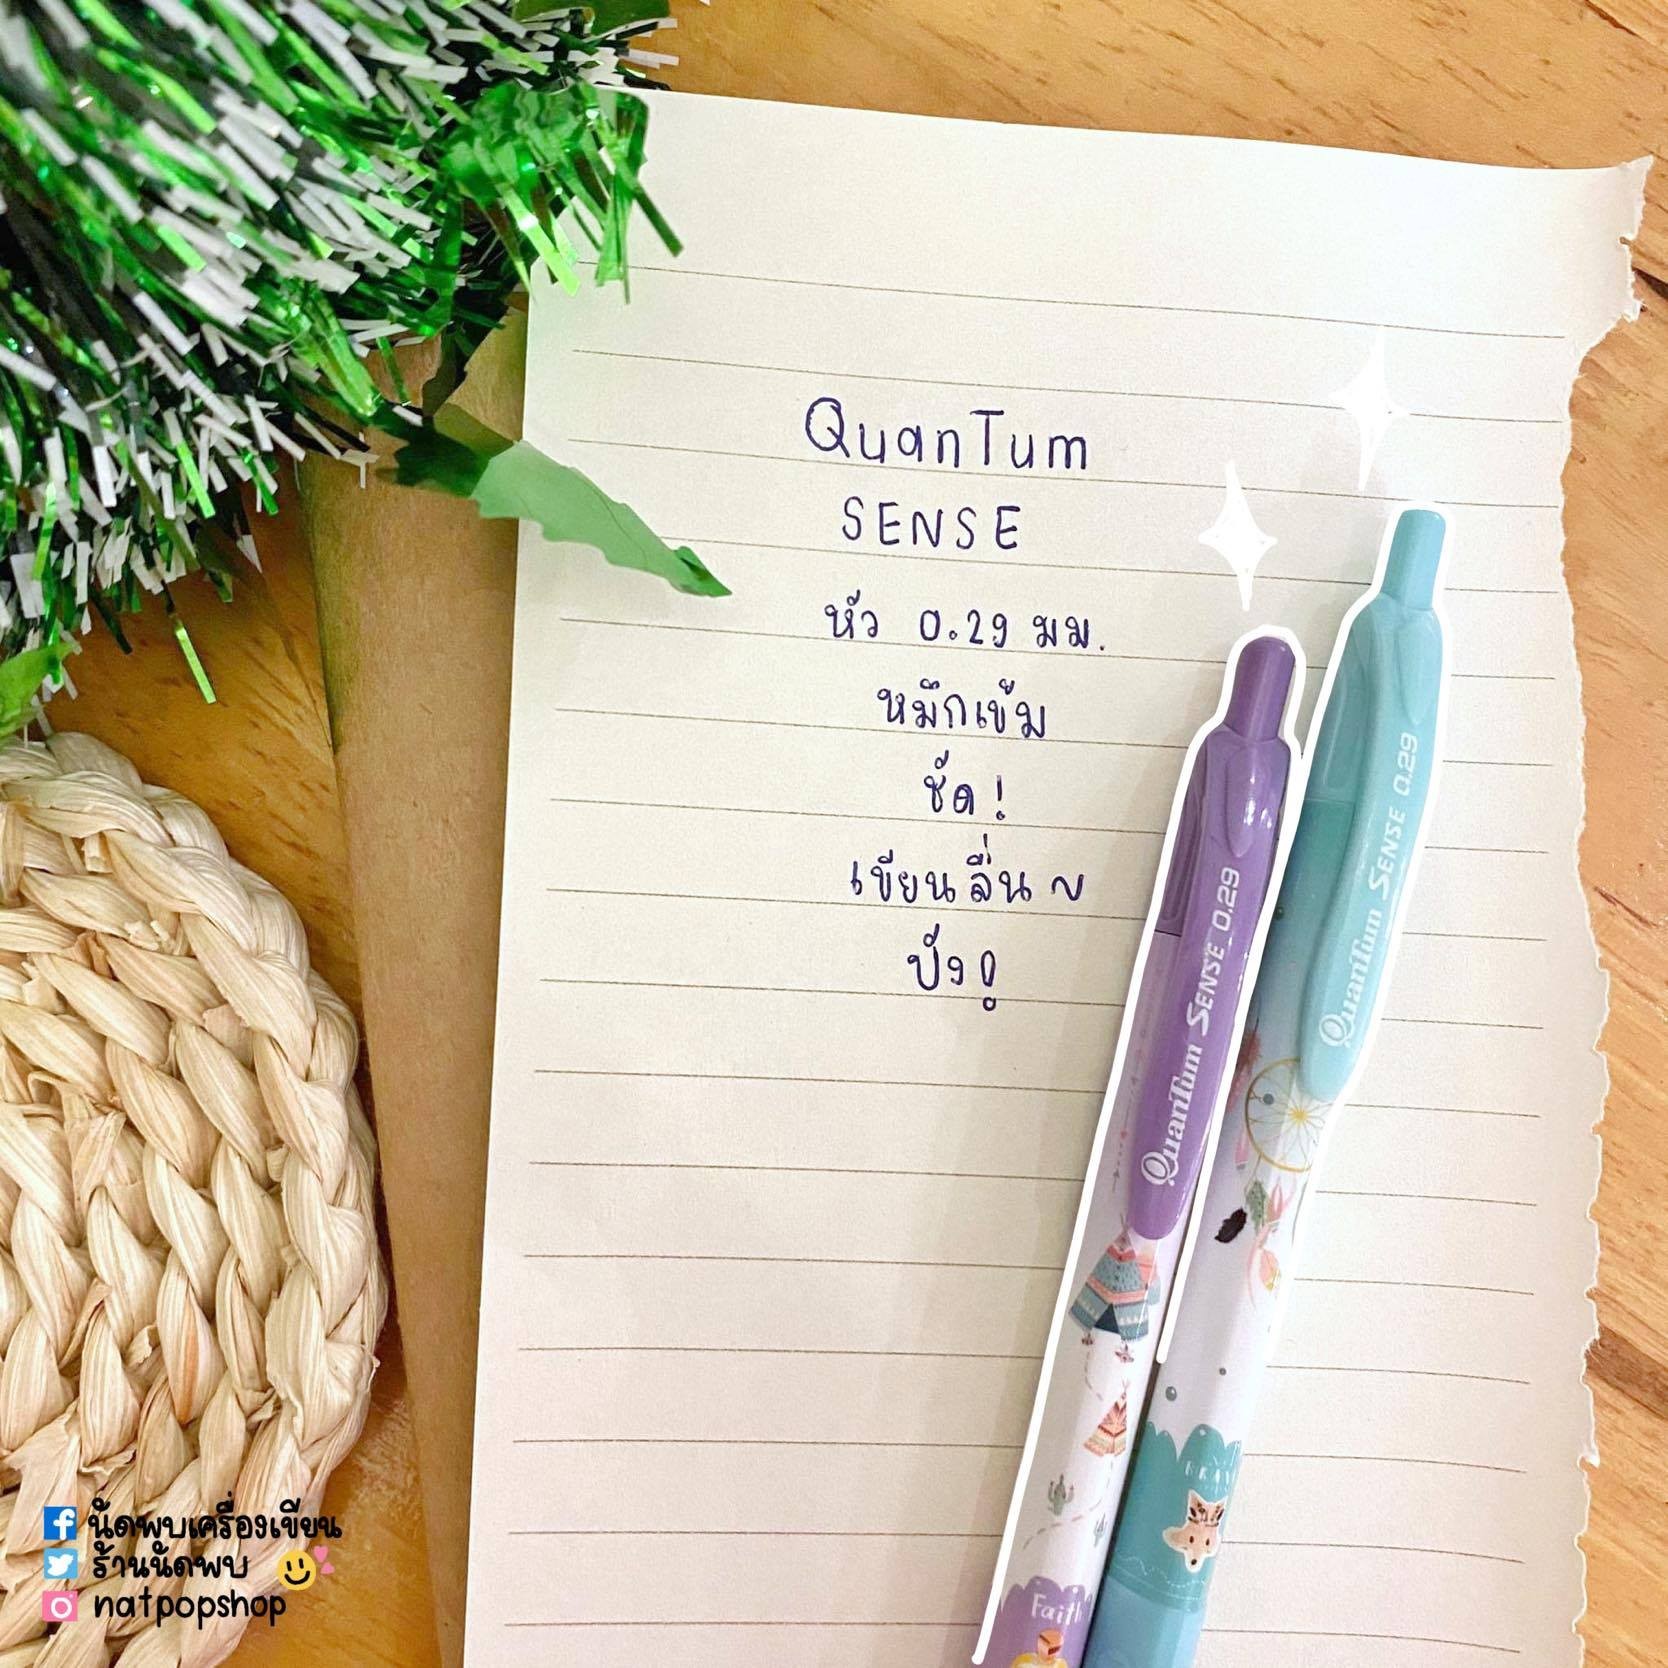 QuanTum
SENSE
หัว 0.29 มม.
หมึกเข้ม
ชัด!
เขียนลื่น ~
ปัง!
QuanTum SENSE 0.29
QuanTum SENSE 0.29
BRAVE
Faith
นัดพบเครื่องเขียน
ร้านนัดพบ
natpopshop